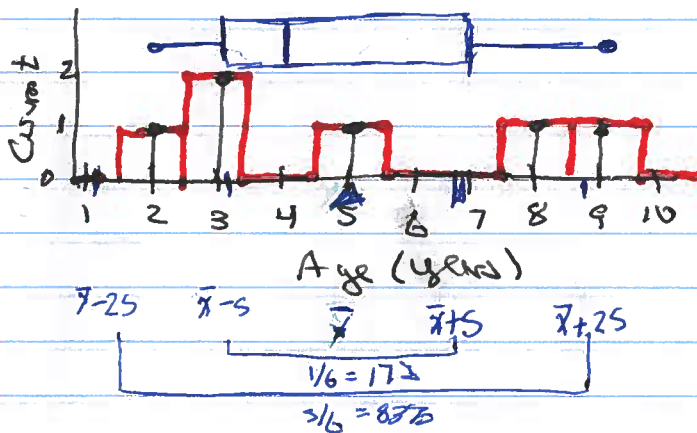 Count
2
1
0
1 2 3 4 5 6 7 8 9 10
Age (years)
x̄-2s x̄-s x̄ x̄+s x̄+2s
1/6 = 17%
5/6 = 83%